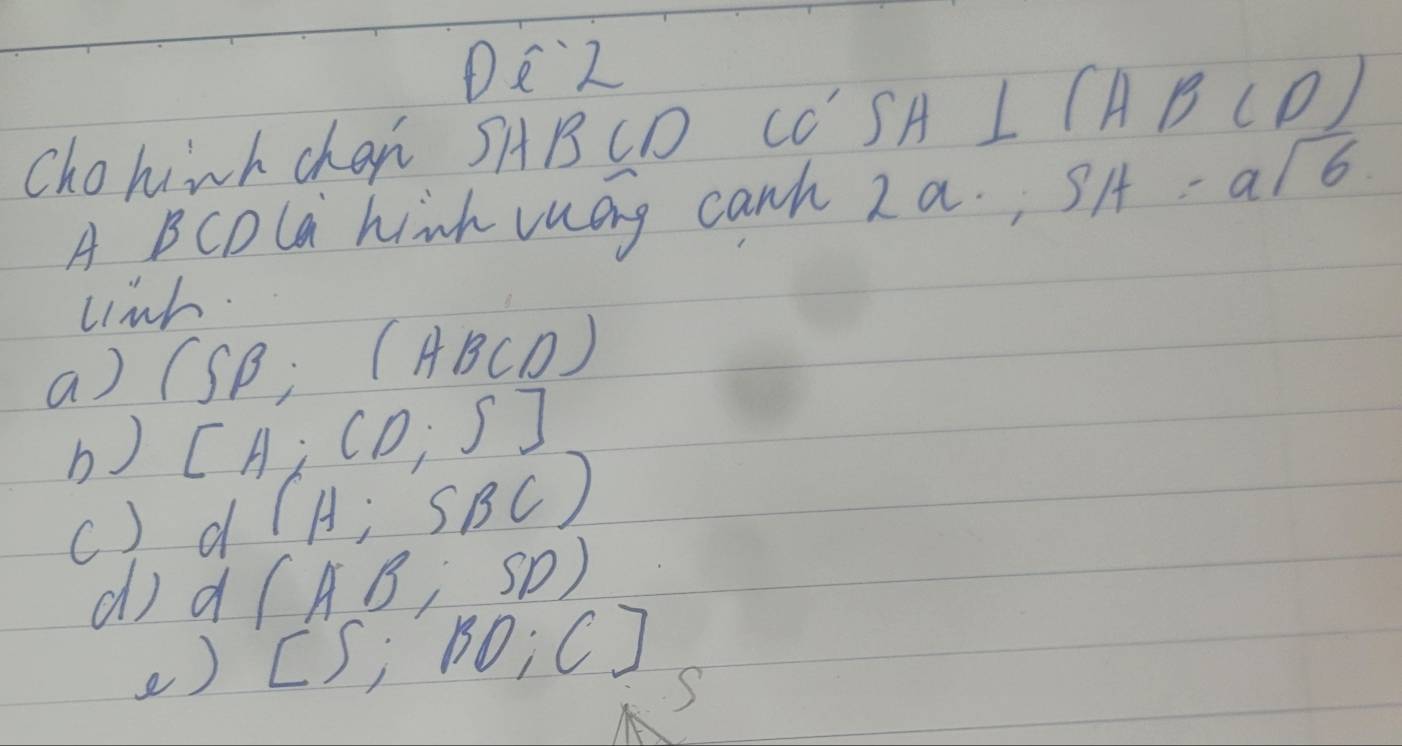 Đề 2
Cho hình chóp SABCD có SA ⊥ (ABCD)
ABCD là hình vuông cạnh 2a., SA = a√6.
Tính.
a) (SB; (ABCD)
b) [A; CD; S]
c) d(A; SBC)
d) d(AB; SD)
e) [S; BD; C]
S